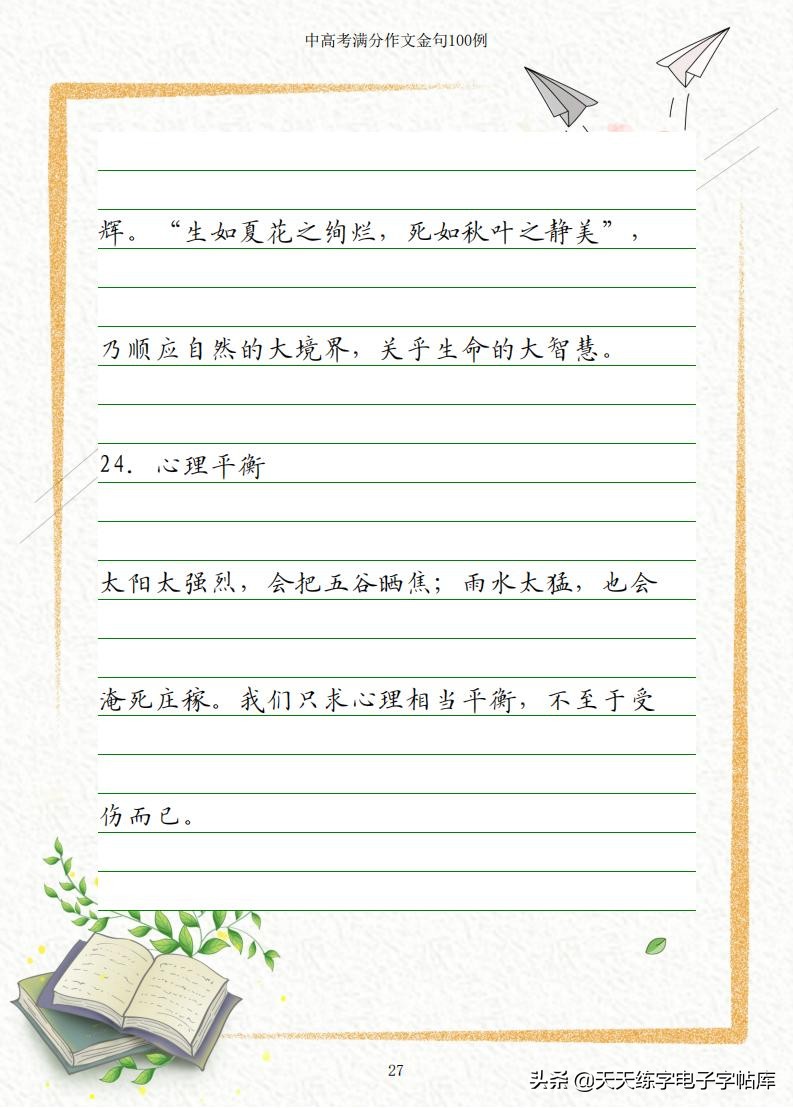 中高考满分作文金句100例
辉。“生如夏花之绚烂，死如秋叶之静美”，
乃顺应自然的大境界，关乎生命的大智慧。
24. 心理平衡
太阳太强烈，会把五谷晒焦；雨水太猛，也会
淹死庄稼。我们只求心理相当平衡，不至于受
伤而已。
27
头条 @天天练字电子字帖库